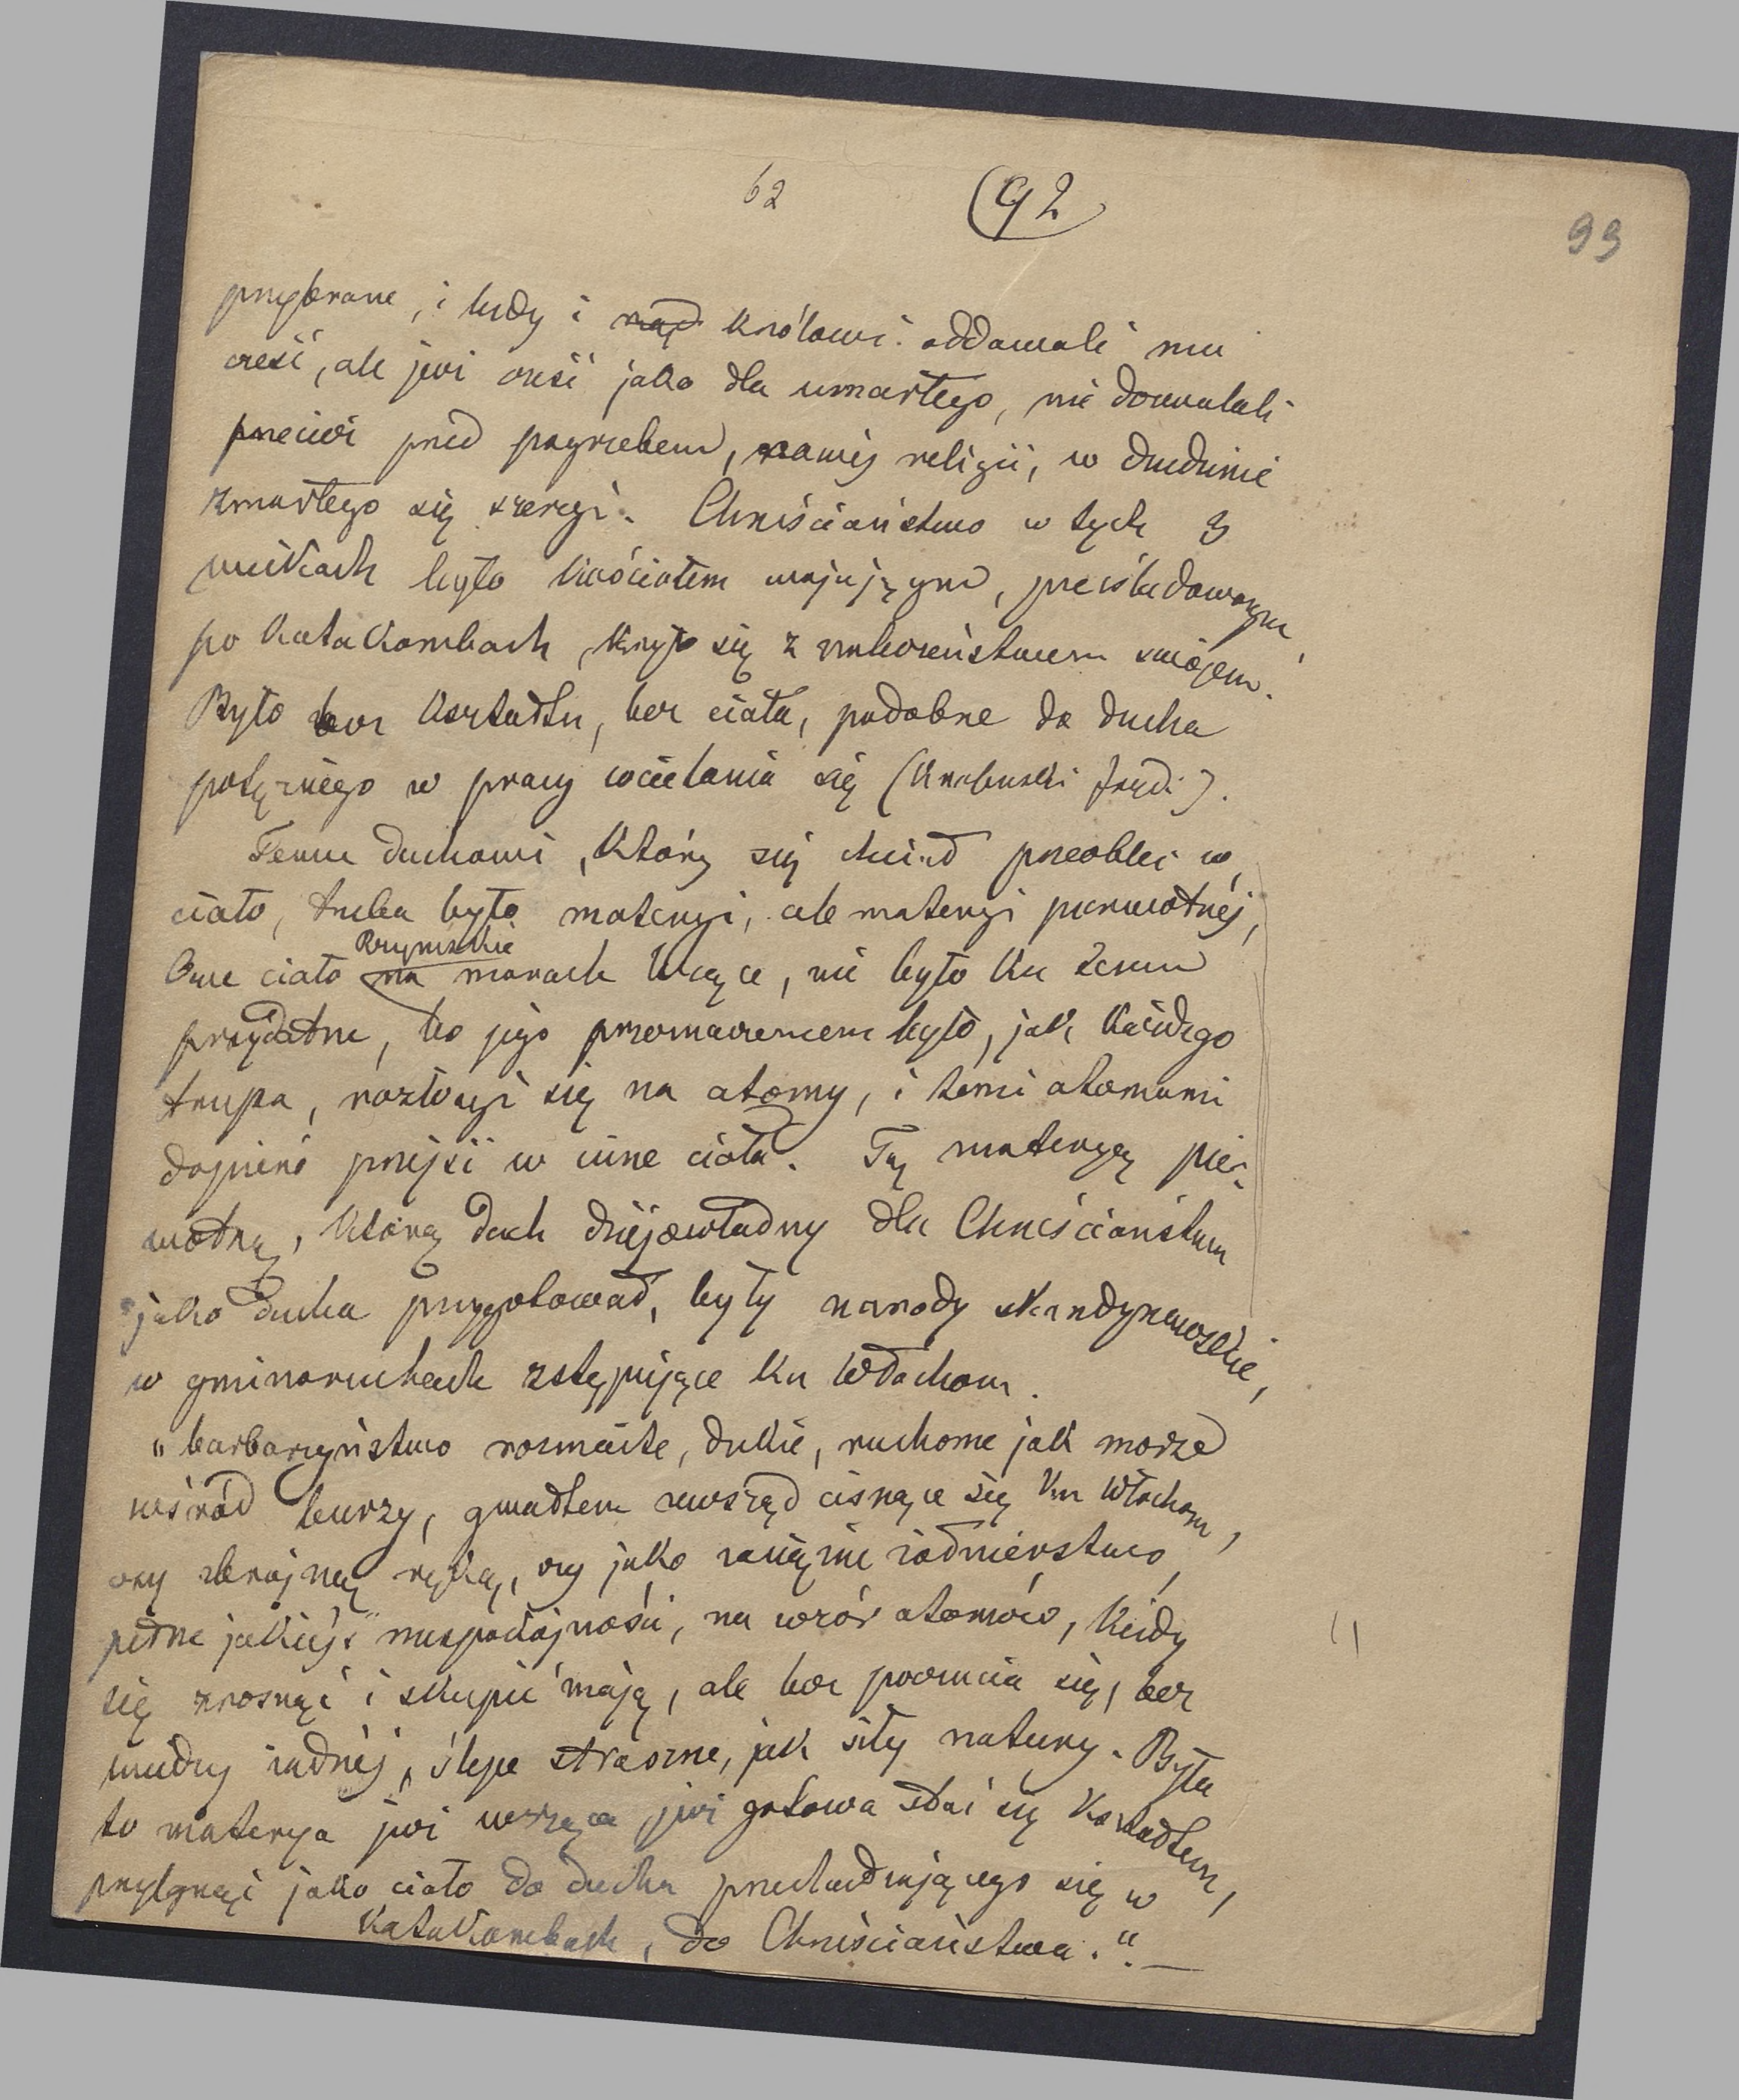 62 (92 99
przybrane, i ludy i rząd królowi oddawali mu
cześć, ale już cześć jako dla umarłego, nie dozwalali
przecież przed pogrzebem, nowej religii, w dziedzinie
zmarłego się szerzyć. Chrześciaństwo w tych 3
wiekach było kościołem wojującym, prześladowanym,
po katakombach, kryjo się z nabożeństwem swojem.
Było bez kształtu, bez ciała, podobne do ducha
potężnego w pracy wcielania się (
Temu duchowi, który się chciał przeoblec w
ciało, trzeba było materyi, ale materyi pierwotnéj,
Owe ciało na Rzymskie marach leżące, nie było ku temu
przydatne, bo jego przeznaczeniem było, jak każdego
trupa, rozłożyć się na atomy, i temi atomami
dopiero przejść w inne ciała. Tę materyę pier-
wotną, którą duch dziejowładny dla Chrześciaństwa
jako ducha przygotował, były narody skandynawskie,
w gminoruchach zstępujące ku Włochom.
"barbarzyństwo rozmaite, dzikie, ruchome jak morze
wśród burzy, gwałtem zewsząd cisnące się ku Włochom,
czy zbrojną ręką, czy jako zaciężne żołnierstwo,
pełne jakiejś niespokojności, na wzór atomów, kiedy
się zrosnąć i skupić mają, ale bez poczucia się, bez
wiedzy żadnéj, ślepe straszne, jak siły natury. Była
to materya już wrząca już gotowa stać się kształtem,
przylgnąć jako ciało do ducha przechadzającego się w
katakombach, do Chrześciaństwa."